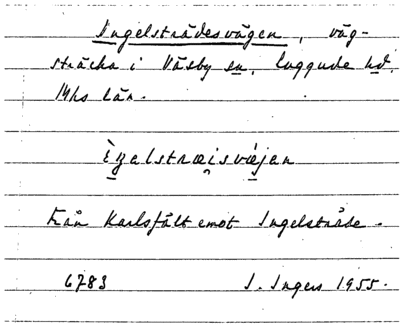 Ingelsträdesvägen, väg-
sträcka i Väsby sn, Luggude hd.
Mhs län.
Från Karlsfält emot Ingelsträde.
6783 I. Ingers 1955.